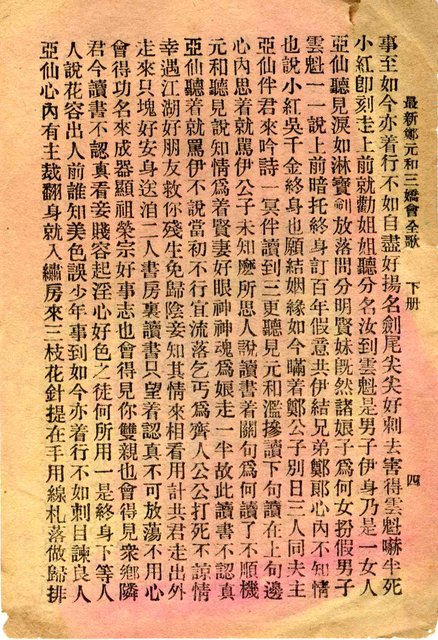 最新鄭元和三嬌會全歌　下册
四
事至如今亦着行不如自盡好揚名劍尾尖尖好刺去害得雲魁嚇半死
小紅卽刻走上前就勸姐姐聽分名汝到雲魁是男子伊身乃是一女人
亞仙聽見淚如淋寶劍放落問分明賢妹旣然諸娘子爲何女扮假男子
雲魁一一說上前暗托終身訂百年假意共伊結兄弟鄭郎心內不知情
也說小紅吳千金終身也願結姻緣如今瞞着鄭公子別日三人同夫主
亞仙伴君來吟詩一冥伴讀到三更聽見元和濫摻讀下句讀在上句邊
心內思着就罵伊公子未知麽所思人說讀書着關句爲何讀了不順機
元和聽見說知情爲着賢妻好眼神神魂爲娘走一半故此讀書不認真
亞仙聽着就罵伊不說當初不行宜流落乞丐爲齊人公公打死不諒情
幸遇江湖好朋友救你殘生免歸陰妾知其情來相看用計共君走出外
走來只塊好安身送泊二人書房裏讀書只望着認真不可放蕩不用心
會得功名來成器顯祖榮宗好事志也會得見你雙親也會得見衆鄉隣
君今讀書不認真看妾賤容起淫心好色之徒何所用一是終身下等人
人說花容出人前誰知美色誤少年事到如今亦着行不如刺目諫良人
亞仙心內有主裁翻身就入繡房來三枝花針提在手用線札落做歸排